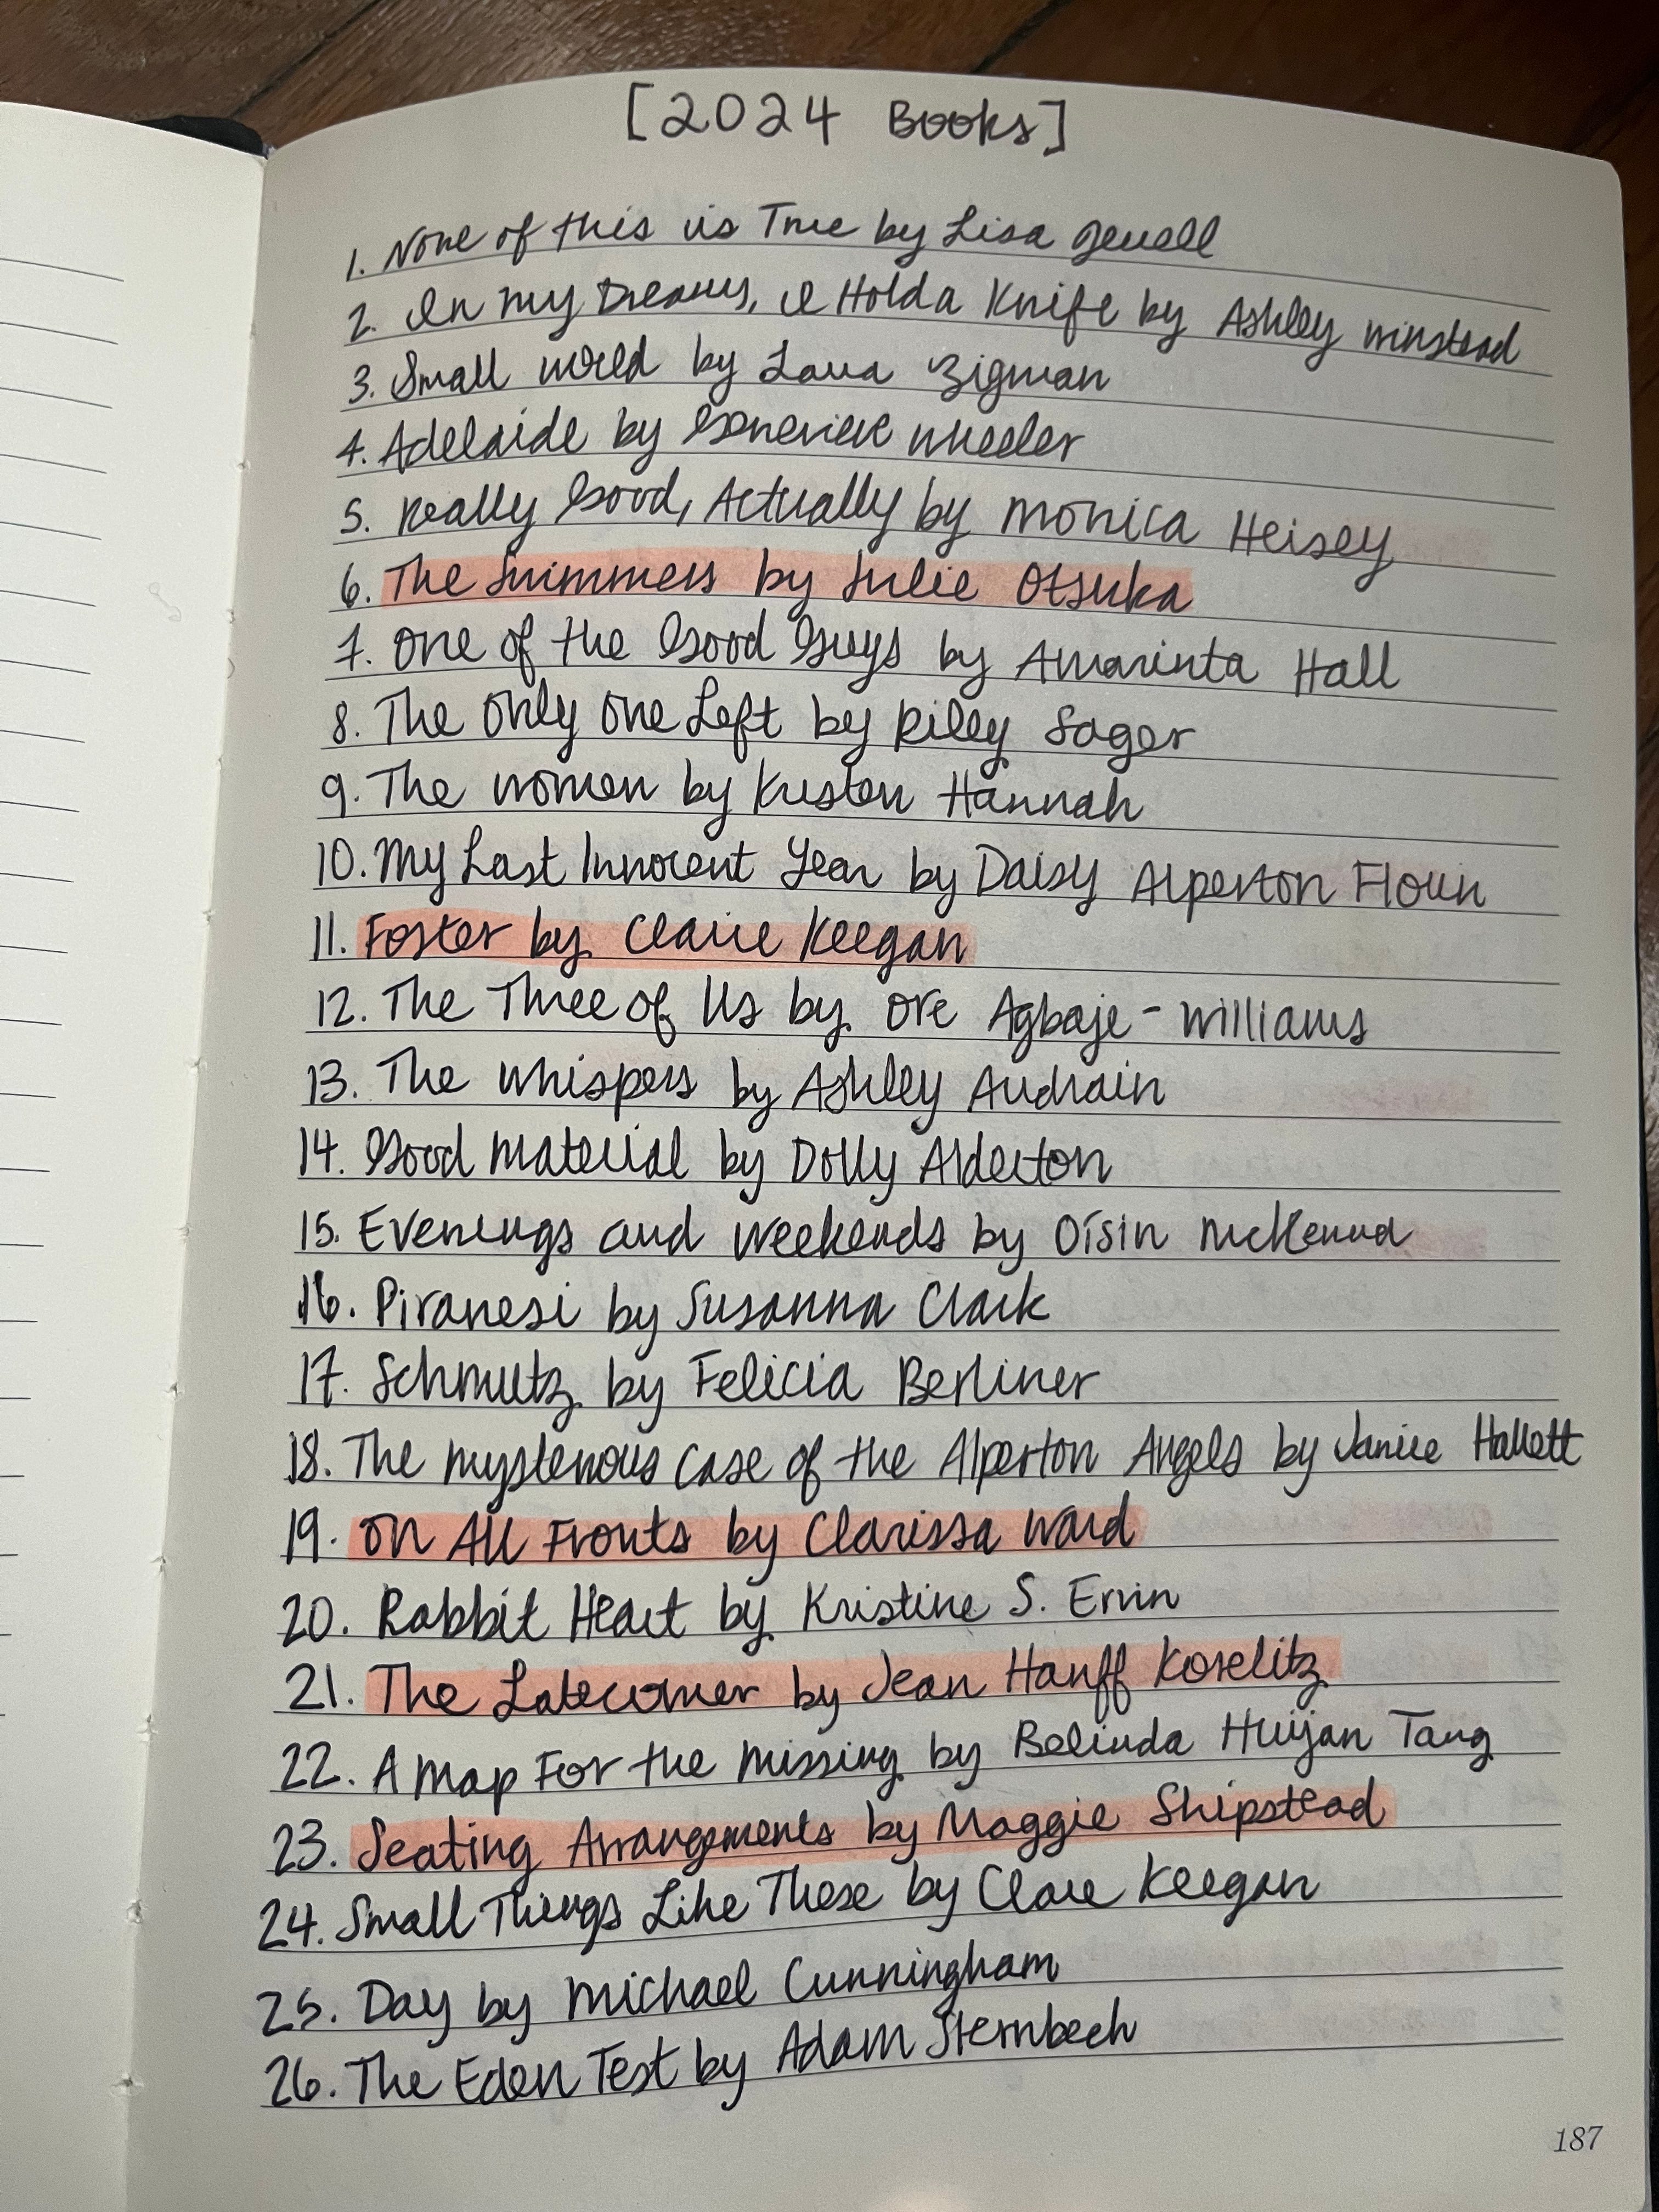 [2024 Books]
1. None of this is True by Lisa Jewell
2. In my Dreams, I Hold a Knife by Ashley Winstead
3. Small world by Laura Zigman
4. Adelaide by Genevieve Wheeler
5. Really Good, Actually by Monica Heisey
6. The Swimmers by Julie Otsuka
7. One of the Good Guys by Amarinta Hall
8. The Only One Left by Riley Sager
9. The Women by Kristen Hannah
10. My Last Innocent Year by Daisy Alperton Florin
11. Foster by Claire Keegan
12. The Three of Us by Ore Agbaje-Williams
13. The Whispers by Ashley Audrain
14. Good Material by Dolly Alderton
15. Evenings and Weekends by Oisín McKenna
16. Piranesi by Susanna Clark
17. Schmutz by Felicia Berliner
18. The Mysterious Case of the Alperton Angels by Janice Hallett
19. On All Fronts by Clarissa Ward
20. Rabbit Heart by Kristine S. Ervin
21. The Latecomer by Jean Hanff Korelitz
22. A Map For the Missing by Belinda Huijan Tang
23. Seating Arrangements by Maggie Shipstead
24. Small Things Like These by Clare Keegan
25. Day by Michael Cunningham
26. The Eden Test by Adam Sternbech
187